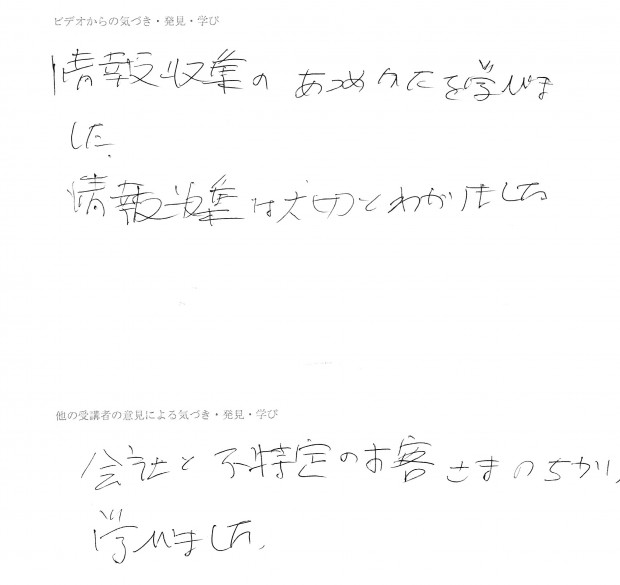 ビデオからの気づき・発見・学び
情報収集の あつめかたを学びま
した.
情報収集は大切とわかりました
他の受講者の意見による気づき・発見・学び
会社と不特定のお客さまのちがい,
学びました.